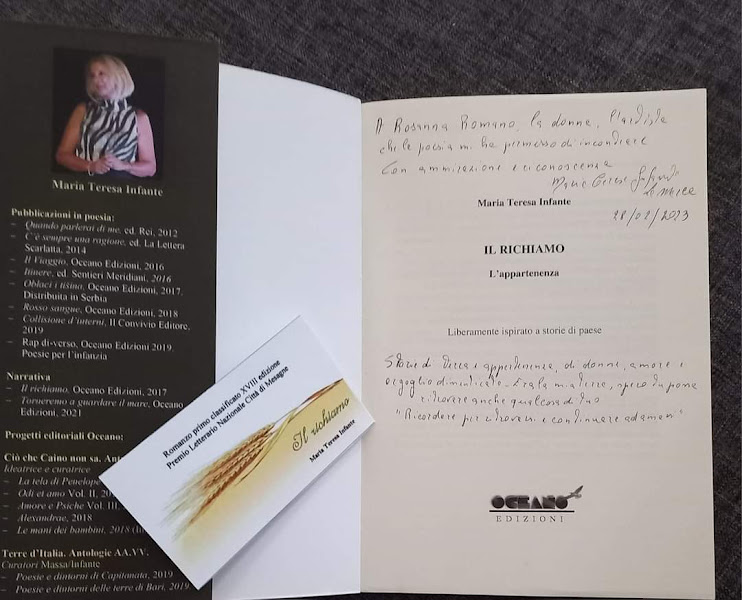 Maria Teresa Infante
Pubblicazioni in poesia:
– Quando parlerai di me, ed. Rei, 2012
– C'è sempre una ragione, ed. La Lettera
Scarlatta, 2014
– Il Viaggio, Oceano Edizioni, 2016
– Itinere, ed. Sentieri Meridiani, 2016
– Oblaci i tišina, Oceano Edizioni, 2017.
Distribuita in Serbia
– Rosso sangue, Oceano Edizioni, 2018
– Collisione d'interni, Il Convivio Editore,
2019
– Rap di-verso, Oceano Edizioni 2019.
Poesie per l'infanzia
Narrativa
– Il richiamo, Oceano Edizioni, 2017
– Torneremo a guardare il mare, Oceano
Edizioni, 2021
Progetti editoriali Oceano:
Ciò che Caino non sa.
Ideatrice e curatrice
– La tela di Penelope
– Odi et amo Vol. II,
– Amore e Psiche Vol. III.
– Alexandrae, 2018
– Le mani dei bambini, 2018
Terre d'Italia. Antologie AA.VV.
Curatori Massa/Infante
– Poesie e dintorni di Capitanata, 2019
– Poesie e dintorni delle terre di Bari, 2019.
Romanzo primo classificato XVIII edizione
Premio Letterario Nazionale Città di Mesagne
Il richiamo
Maria Teresa Infante
A Rosanna Romano, la donna, l'artista
che la poesia mi ha permesso di incontrare
Con ammirazione e riconoscenza
Maria Teresa Infante
La Marca
Maria Teresa Infante
28/02/2023
IL RICHIAMO
L'appartenenza
Liberamente ispirato a storie di paese
Storie di terra e appartenenza, di donne, amore e
orgoglio
ritrovare anche qualcosa di tuo
"Ricordare per ritrovarsi e continuare ad amarsi"
OCEANO
EDIZIONI